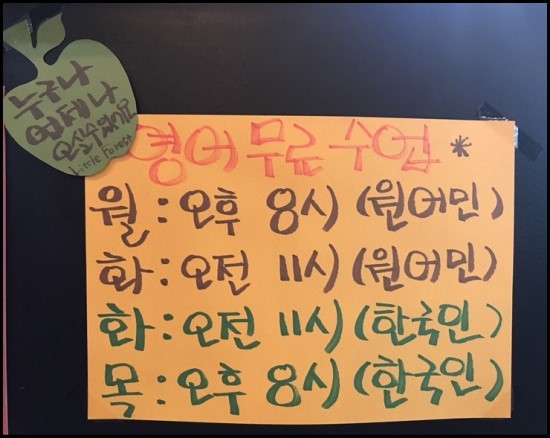 누구나
언제나
오실수있어요
Little Forest
영어 무료 수업 *
월 : 오후 8시 (원어민)
화 : 오전 11시 (원어민)
화 : 오전 11시 (한국인)
목 : 오후 8시 (한국인)